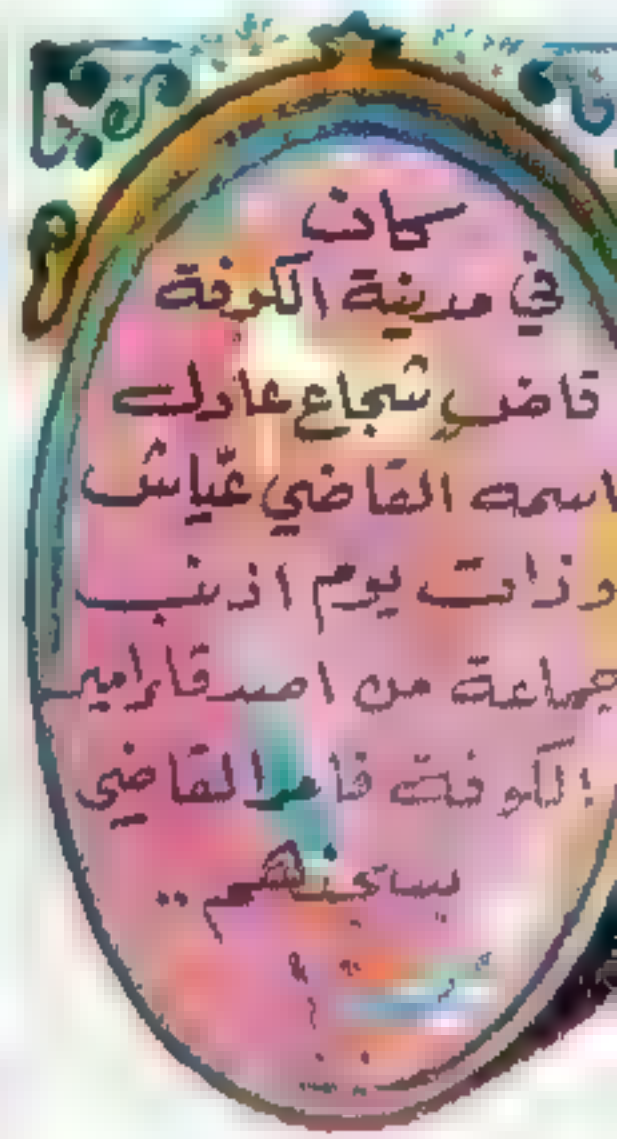 كان
في مدينة الكوفة
قاضٍ شجاع عادل
اسمه القاضي عيّاش
وذات يوم اذنب
جماعة من اصدقاء امير
الكوفة فامر القاضي
بسجنهم ..